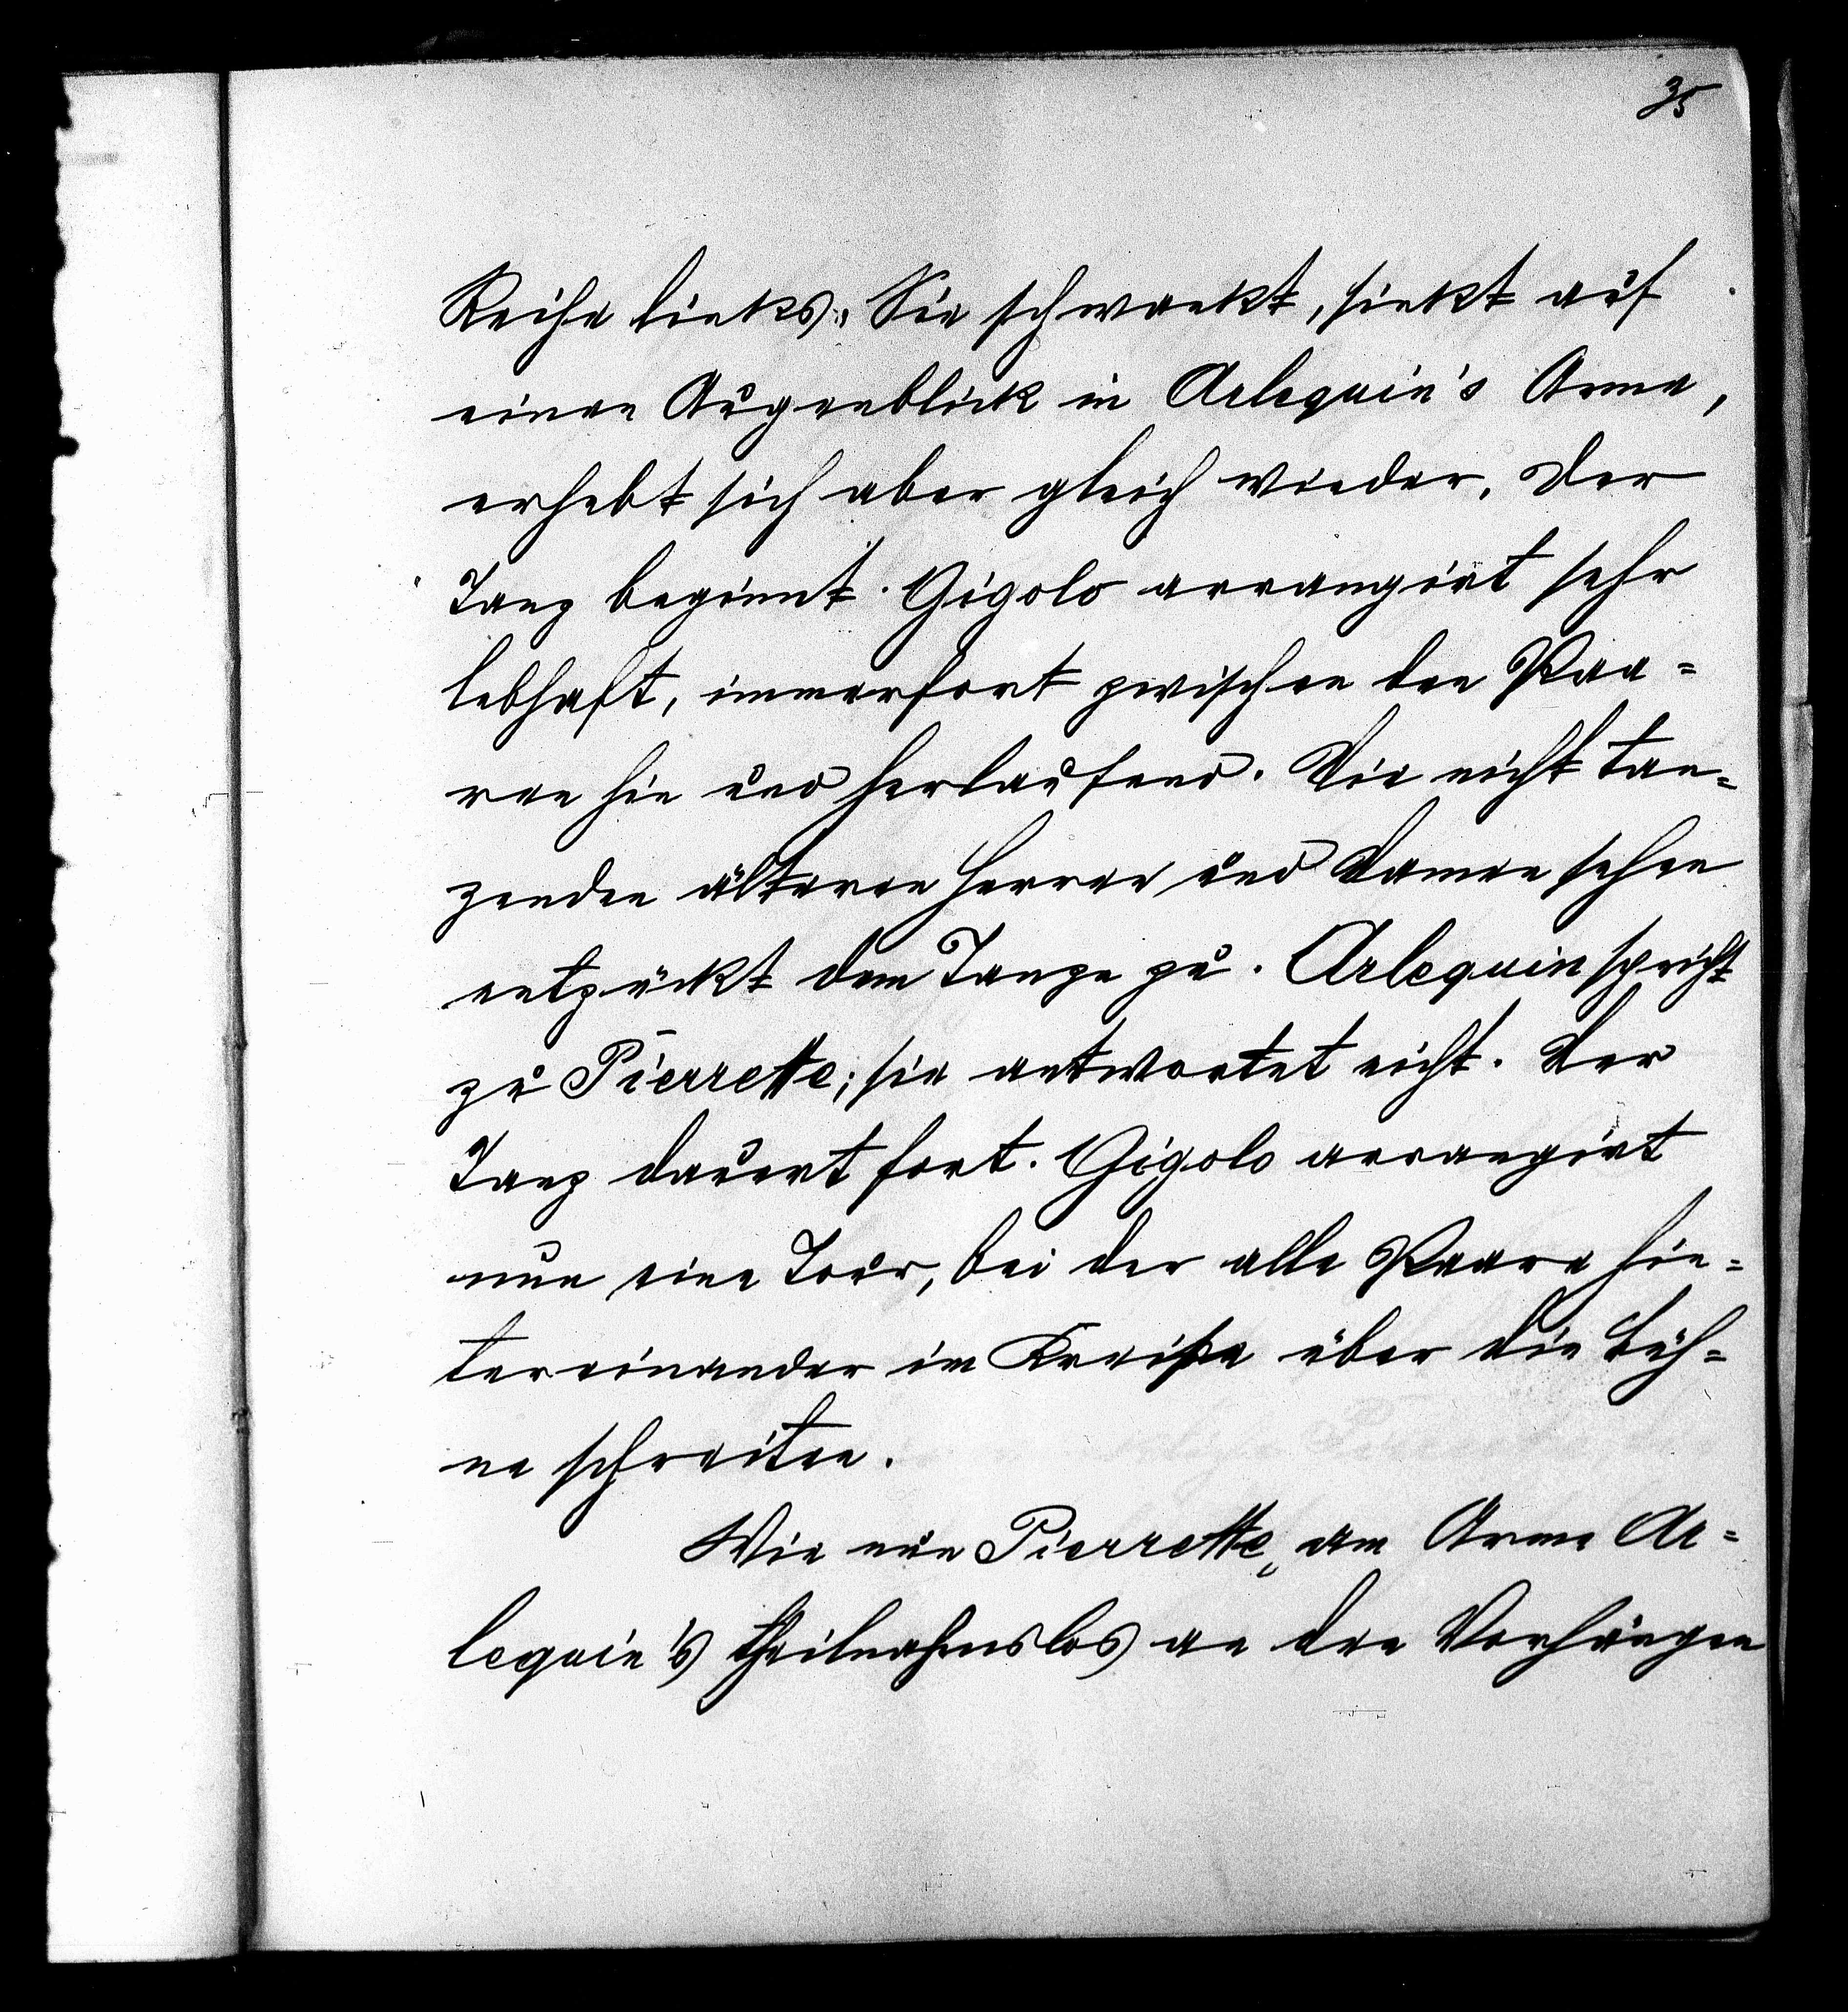 35
Reihe links. Sie schwankt, sinkt auf
einen Augenblick in Arlequin's Arme,
erhebt sich aber gleich wieder. Der
Tanz beginnt. Gigolo arrangirt sehr
lebhaft, immerfort zwischen den Paa=
ren hin und herlaufend. Die nicht tan=
zenden älteren Herren und Damen sehen
entzückt dem Tanze zu. Arlequin spricht
zu Pierrette; sie antwortet nicht. Der
Tanz dauert fort. Gigolo arrangirt
nun eine Tour, bei der alle Paare hin=
tereinander im Kreise über die Büh=
ne schreiten.
Wie nun Pierrette, am Arme Ar=
lequin's theilnahmslos an den Vorhängen